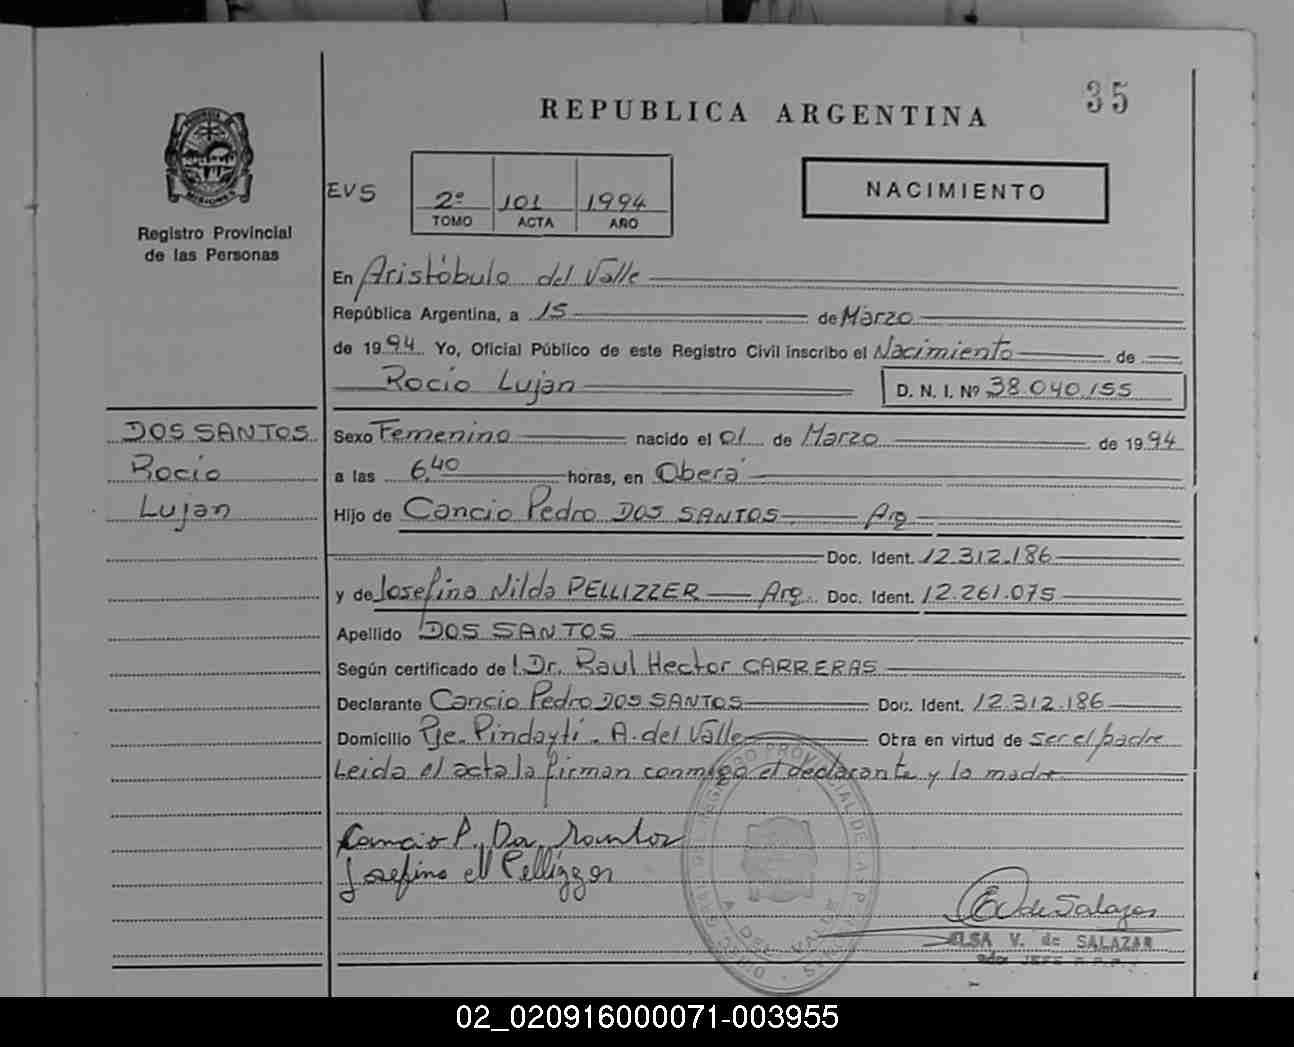 35
REPUBLICA ARGENTINA
MISIONES
Registro Provincial
de las Personas
EVS
2º 101 1994
TOMO ACTA AÑO
NACIMIENTO
En Aristóbulo del Valle
República Argentina, a 15 de Marzo
de 1994 Yo, Oficial Público de este Registro Civil inscribo el Nacimiento de
Rocio Lujan D. N. I. Nº 38.040.155
DOS SANTOS
Rocio
Lujan
Sexo Femenino nacido el 01 de Marzo de 1994
a las 6,40 horas, en Oberá
Hijo de Cancio Pedro DOS SANTOS Arg
Doc. Ident. 12.312.186
y de Josefina Nilda PELLIZZER Arg. Doc. Ident. 12.261.075
Apellido DOS SANTOS
Según certificado de Dr. Raul Hector CARRERAS
Declarante Cancio Pedro DOS SANTOS Doc. Ident. 12.312.186
Domicilio Pje. Pindayti. A. del Valle Obra en virtud de ser el padre
Leida el acta la firman conmigo el declarante y la madre
Cancio P. Dos Santos
Josefina N Pellizzer
REGISTRO PROVINCIAL DE LAS PERSONAS
A. DEL VALLE
E V de Salazar
ELSA V. de SALAZAR
JEFE R.P.P.
02_020916000071-003955